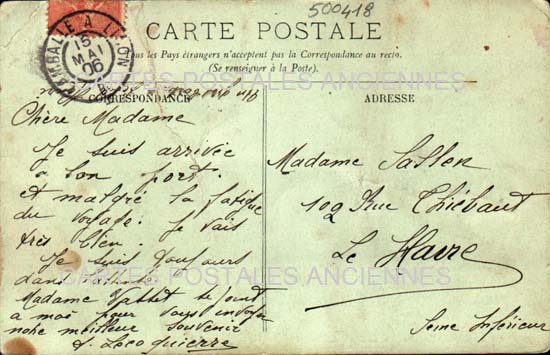 500418
CARTE POSTALE
Tous les Pays étrangers n'acceptent pas la Correspondance au recto.
(Se renseigner à la Poste).
LAMBALLE A LANNION
15
MAI
06
CARTES POSTALES ANCIENNES
CORRESPONDANCE
ADRESSE
Chère Madame
Je suis arrivée
a bon port.
et malgré la fatigue
du voyage. Je vais
très bien.
Je suis toujours
dans
Madame se joint
a moi pour vous envoyer
notre meilleur souvenir
Madame Sassen
102 Rue Thiébaut
Le Havre
CARTES POSTALES ANCIENNES
Seine Inférieur